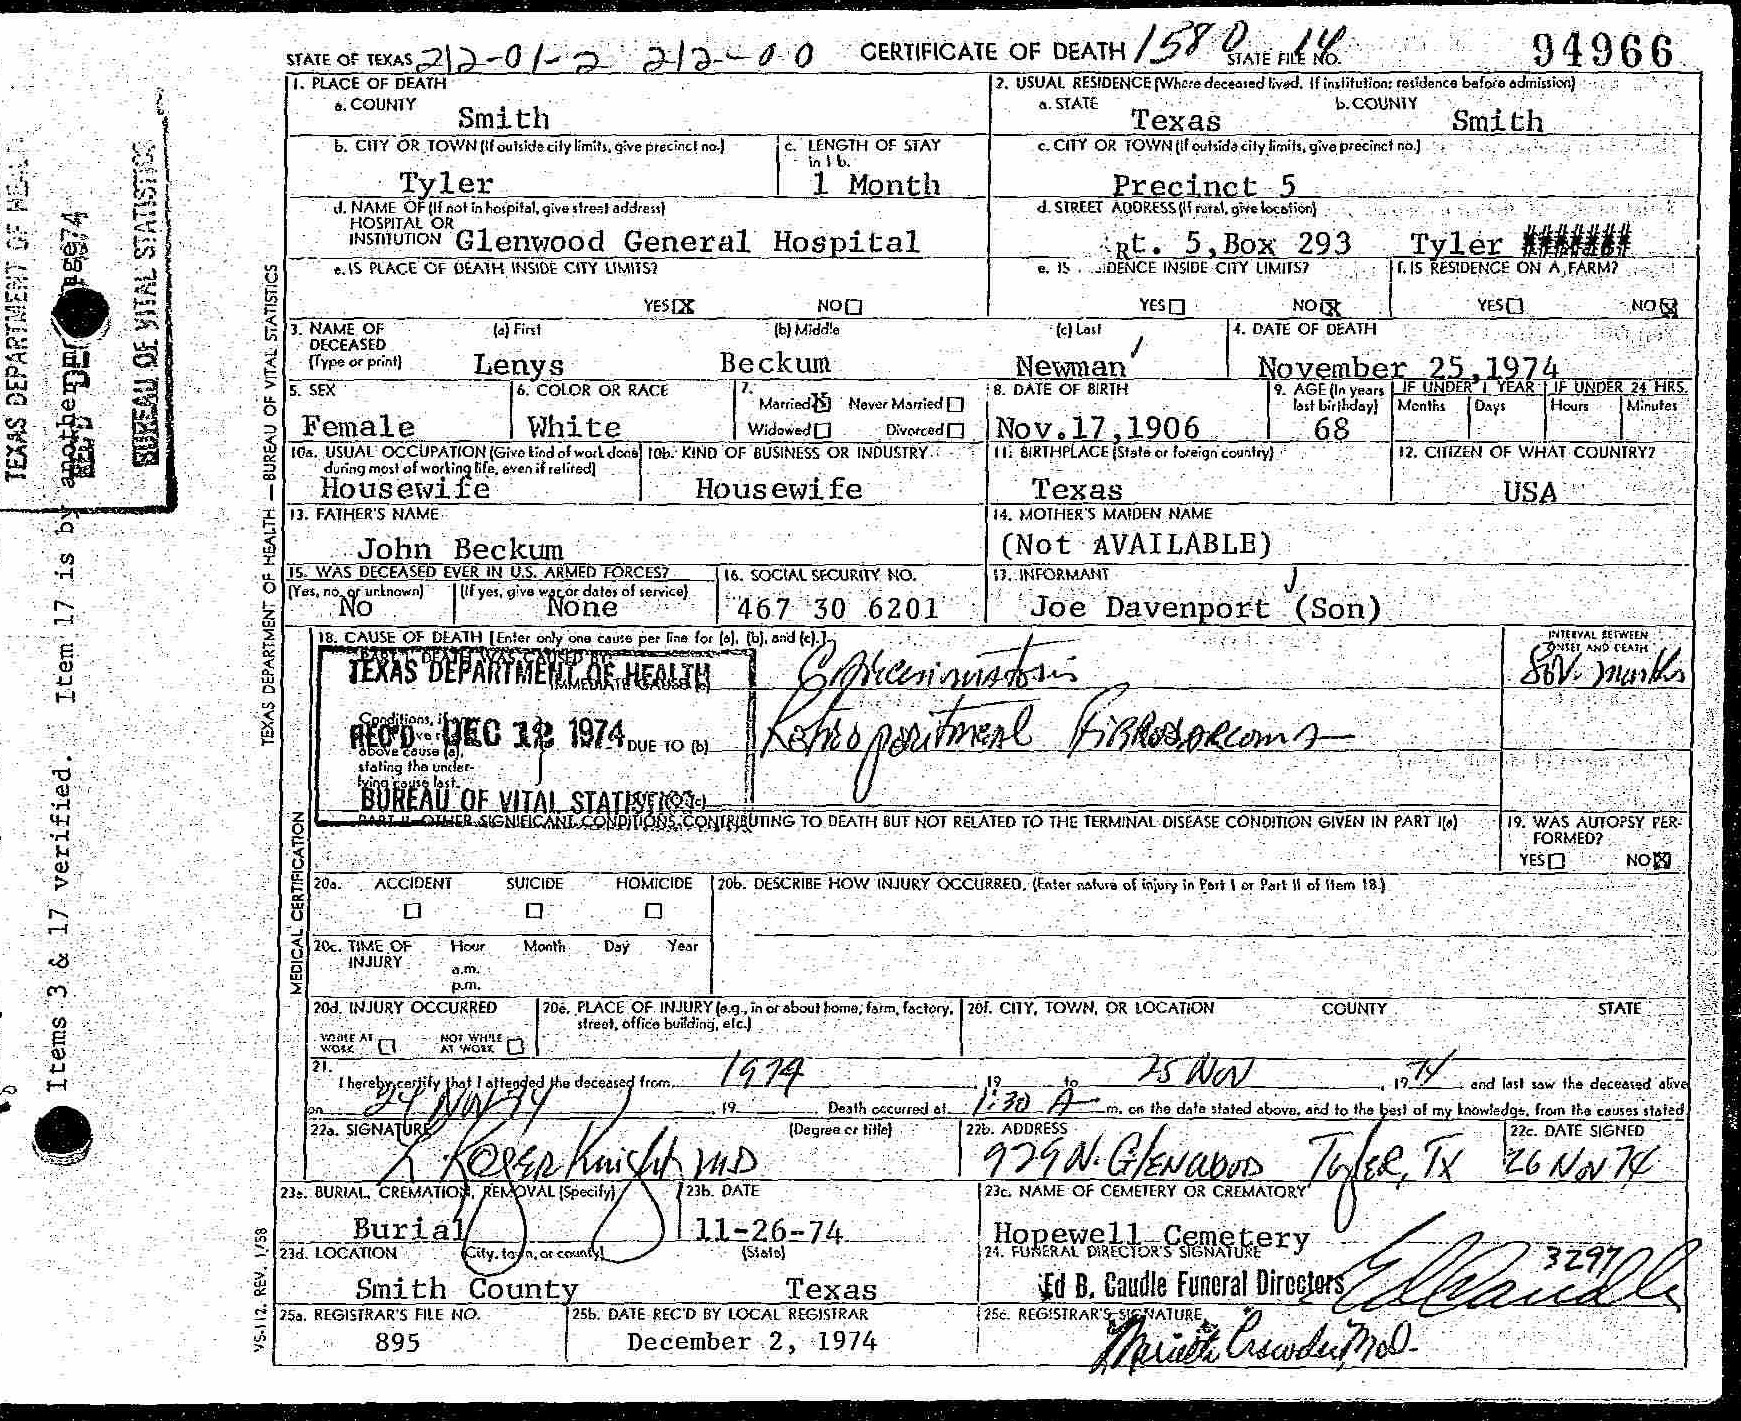 STATE OF TEXAS 212-01-2 212-00 CERTIFICATE OF DEATH 1580 STATE FILE NO. 14 94966
1. PLACE OF DEATH
a. COUNTY
Smith
2. USUAL RESIDENCE (Where deceased lived. If institution: residence before admission)
a. STATE b. COUNTY
Texas Smith
b. CITY OR TOWN (If outside city limits, give precinct no.) c. LENGTH OF STAY in 1 b.
Tyler 1 Month
c. CITY OR TOWN (If outside city limits, give precinct no.)
Precinct 5
d. NAME OF (If not in hospital, give street address)
HOSPITAL OR
INSTITUTION Glenwood General Hospital
d. STREET ADDRESS (If rural, give location)
Rt. 5, Box 293 Tyler #######
e. IS PLACE OF DEATH INSIDE CITY LIMITS?
YES X NO
e. IS DENCE INSIDE CITY LIMITS? f. IS RESIDENCE ON A FARM?
YES NO X YES NO X
3. NAME OF DECEASED (Type or print) (a) First (b) Middle (c) Last
Lenys Beckum Newman
4. DATE OF DEATH
November 25, 1974
5. SEX
Female
6. COLOR OR RACE
White
7.
Married X Never Married
Widowed Divorced
8. DATE OF BIRTH
Nov. 17, 1906
9. AGE (In years last birthday) IF UNDER 1 YEAR IF UNDER 24 HRS.
Months Days Hours Minutes
68
10a. USUAL OCCUPATION (Give kind of work done during most of working life, even if retired)
Housewife
10b. KIND OF BUSINESS OR INDUSTRY
Housewife
11. BIRTHPLACE (State or foreign country)
Texas
12. CITIZEN OF WHAT COUNTRY?
USA
13. FATHER'S NAME
John Beckum
14. MOTHER'S MAIDEN NAME
(Not AVAILABLE)
15. WAS DECEASED EVER IN U.S. ARMED FORCES?
(Yes, no, or unknown) (If yes, give war or dates of service)
No None
16. SOCIAL SECURITY NO.
467 30 6201
17. INFORMANT
Joe Davenport (Son)
18. CAUSE OF DEATH [Enter only one cause per line for (a), (b), and (c).]
INTERVAL BETWEEN ONSET AND DEATH
PART I. DEATH WAS CAUSED BY:
IMMEDIATE CAUSE (a) Carcinomatosis months
TEXAS DEPARTMENT OF HEALTH
REC'D DEC 12 1974
BUREAU OF VITAL STATISTICS
above cause (a)
stating the under-
lying cause last.
DUE TO (b) Retroperitoneal Fibrosarcoma
PART II. OTHER SIGNIFICANT CONDITIONS CONTRIBUTING TO DEATH BUT NOT RELATED TO THE TERMINAL DISEASE CONDITION GIVEN IN PART I(a)
19. WAS AUTOPSY PERFORMED?
YES NO X
20a. ACCIDENT SUICIDE HOMICIDE
20b. DESCRIBE HOW INJURY OCCURRED. (Enter nature of injury in Part I or Part II of item 18.)
20c. TIME OF INJURY Hour Month Day Year
a.m.
p.m.
20d. INJURY OCCURRED
WHILE AT WORK NOT WHILE AT WORK
20e. PLACE OF INJURY (e.g., in or about home, farm, factory, street, office building, etc.)
20f. CITY, TOWN, OR LOCATION COUNTY STATE
21.
I hereby certify that I attended the deceased from 1974, 19 to 25 Nov, 1974 and last saw the deceased alive
on 24 Nov 74, 19 Death occurred at 1:30 A m. on the date stated above, and to the best of my knowledge, from the causes stated
22a. SIGNATURE (Degree or title)
L. Roger Knight MD
22b. ADDRESS
929 N. Glenwood Tyler, TX
22c. DATE SIGNED
26 Nov 74
23a. BURIAL, CREMATION, REMOVAL (Specify)
Burial
23b. DATE
11-26-74
23c. NAME OF CEMETERY OR CREMATORY
Hopewell Cemetery
23d. LOCATION (City, town, or county) (State)
Smith County Texas
24. FUNERAL DIRECTOR'S SIGNATURE
Ed B. Caudle Funeral Directors Ed Caudle 3297
25a. REGISTRAR'S FILE NO.
895
25b. DATE REC'D BY LOCAL REGISTRAR
December 2, 1974
25c. REGISTRAR'S SIGNATURE
MEDICAL CERTIFICATION
TEXAS DEPARTMENT OF HEALTH — BUREAU OF VITAL STATISTICS
VS-112. REV. 1/58
Items 3 & 17 verified. Item 17 is by another
TEXAS DEPARTMENT OF HEAL
BUREAU OF VITAL STATISTICS